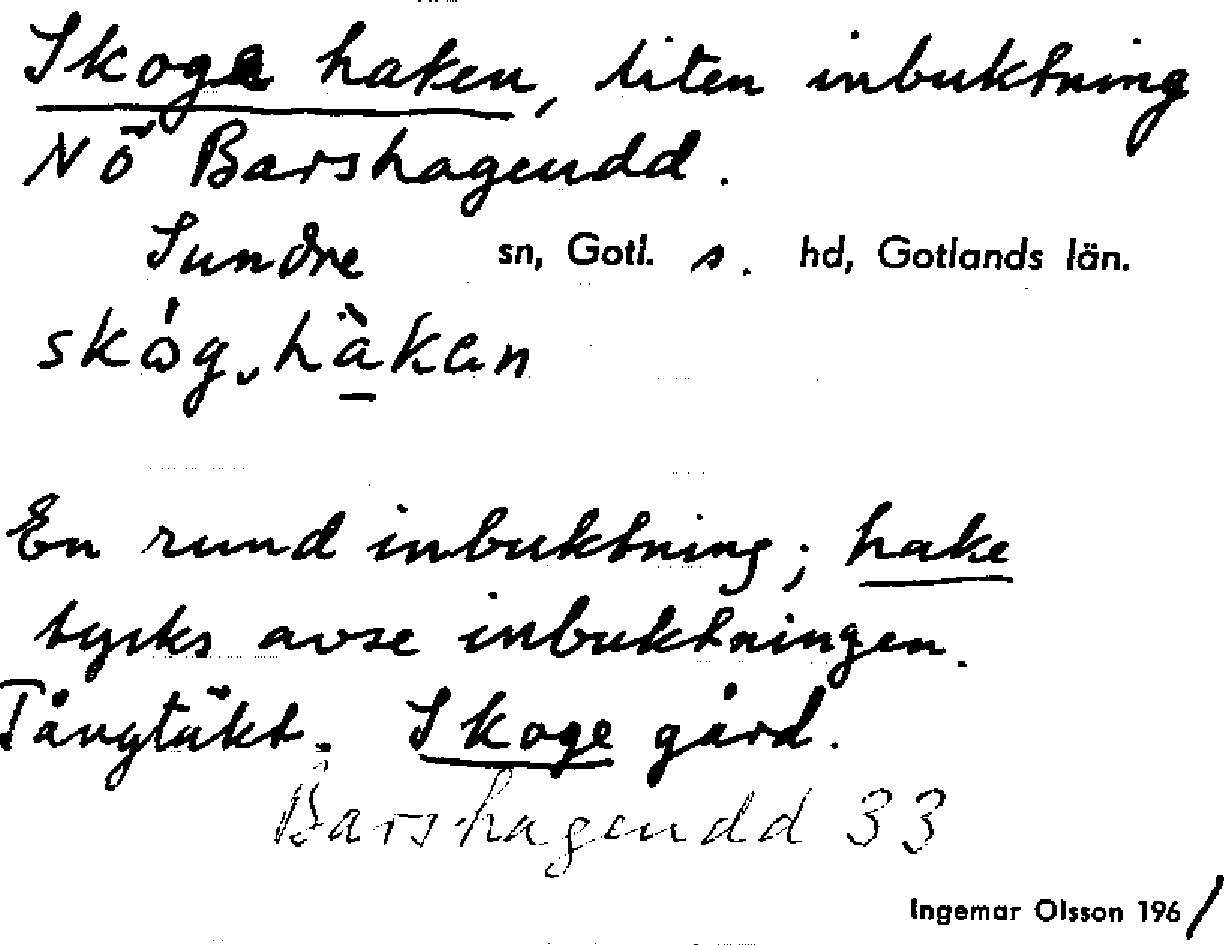 Skoge haken, liten inbuktning
NÖ Barshageudd.
Sundre sn, Gotl. s. hd, Gotlands län.
En rund inbuktning; hake
tycks avse inbuktningen.
Tångtäkt. Skoge gård.
Barshageudd 33
Ingemar Olsson 1961